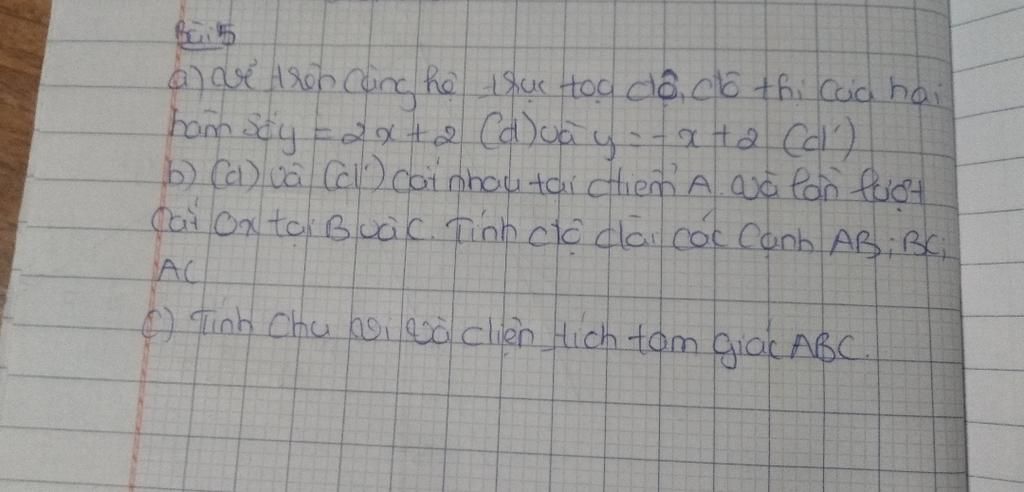 Bài 5
a) Vẽ trên cùng hệ trục toạ độ, đồ thị của hai
hàm số y = 2x + 2 (d) và y = -x + 2 (d')
b) (d) và (d') cắt nhau tại điểm A và lần lượt
cắt Ox tại B và C. Tính độ dài các cạnh AB; BC;
AC
c) Tính chu vi và diện tích tam giác ABC.